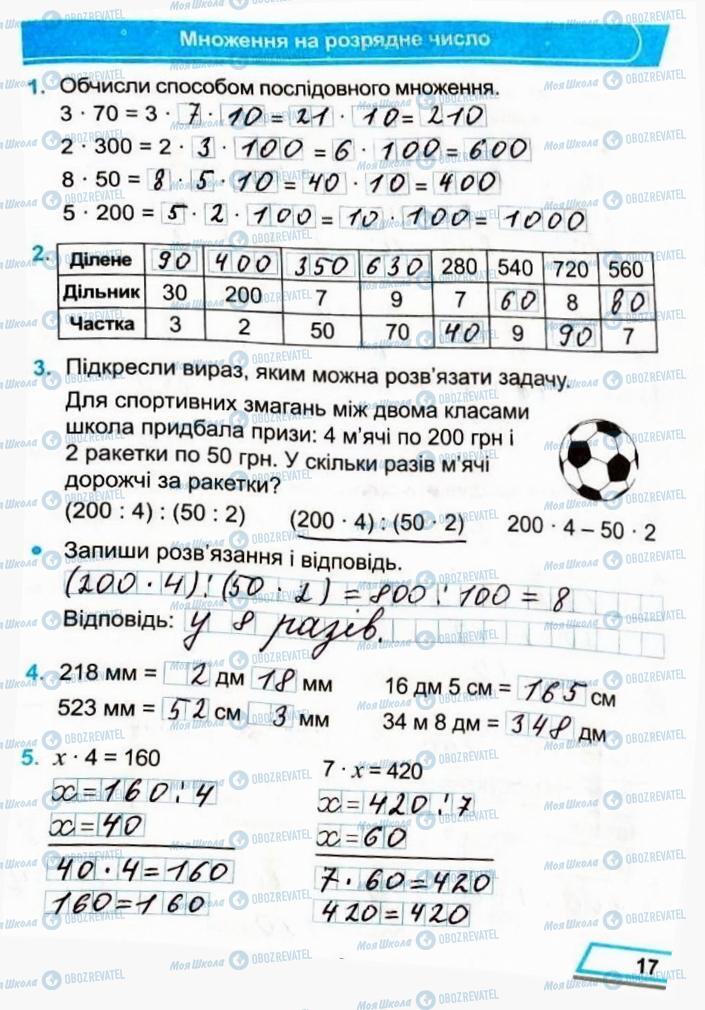 Множення на розрядне число
1. Обчисли способом послідовного множення.
3 · 70 = 3 · 7 · 10 = 21 · 10 = 210
2 · 300 = 2 · 3 · 100 = 6 · 100 = 600
8 · 50 = 8 · 5 · 10 = 40 · 10 = 400
5 · 200 = 5 · 2 · 100 = 10 · 100 = 1000
2. Ділене 90 400 350 630 280 540 720 560
Дільник 30 200 7 9 7 60 8 80
Частка 3 2 50 70 40 9 90 7
3. Підкресли вираз, яким можна розв'язати задачу.
Для спортивних змагань між двома класами
школа придбала призи: 4 м'ячі по 200 грн і
2 ракетки по 50 грн. У скільки разів м'ячі
дорожчі за ракетки?
(200 : 4) : (50 : 2) (200 · 4) : (50 · 2) 200 · 4 – 50 · 2
• Запиши розв'язання і відповідь.
(200 · 4) : (50 · 2) = 800 : 100 = 8
Відповідь: у 8 разів.
4. 218 мм = 2 дм 18 мм 16 дм 5 см = 165 см
523 мм = 52 см 3 мм 34 м 8 дм = 348 дм
5. x · 4 = 160 7 · x = 420
x = 160 : 4 x = 420 : 7
x = 40 x = 60
40 · 4 = 160 7 · 60 = 420
160 = 160 420 = 420
17